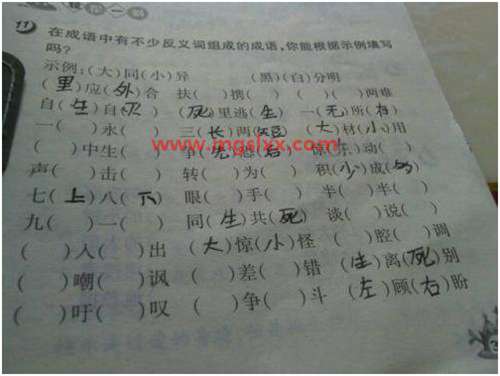 11 在成语中有不少反义词组成的成语,你能根据示例填写
吗?
示例:(大)同(小)异 (黑)(白)分明
(里)应(外)合 扶( )携( ) ( )( )两难
自(生)自(灭) (死)里逃(生) 一(无)所(有)
一( )永( ) 三(长)两(短) (大)材(小)用
( )中生( ) 争(先)恐(后) ( )动( )
声( )击( ) 转( )为( ) 积(少)成(多)
七(上)八(下) 眼( )手( ) 半( )半( )
九( )一( ) 同(生)共(死) 谈( )说( )
( )入( )出 (大)惊(小)怪 ( )腔( )调
( )嘲( )讽 ( )差( )错 (生)离(死)别
( )吁( )叹 ( )争( )斗 (左)顾(右)盼
www.mgslxx.com